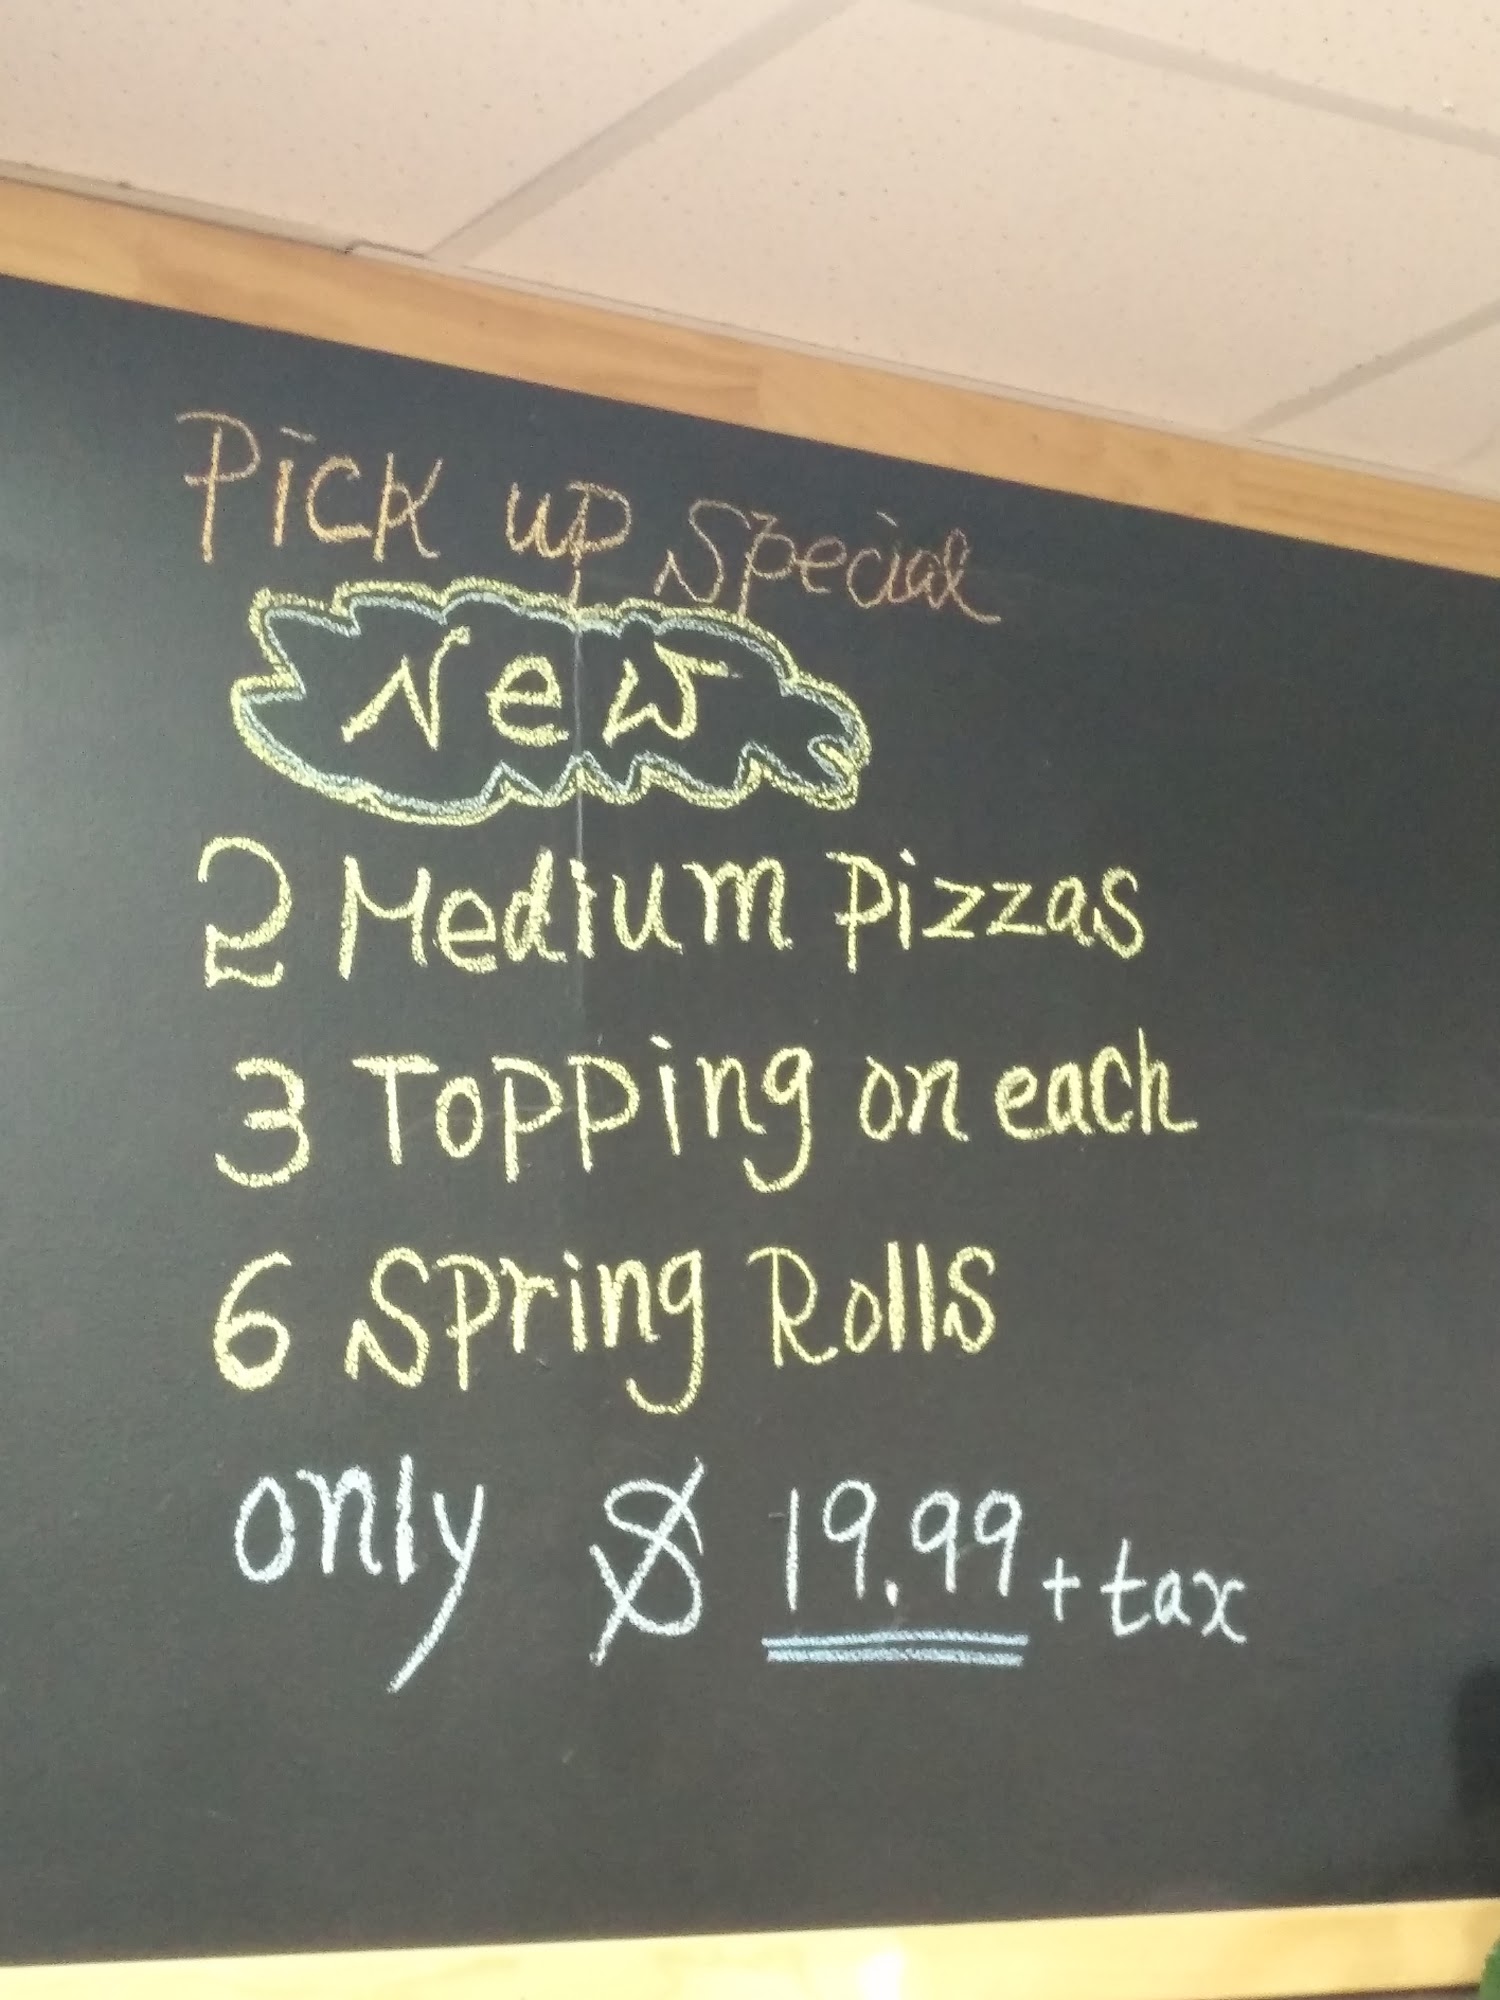 Pick up special
New
2 Medium Pizzas
3 Topping on each
6 Spring Rolls
only $ 19.99 + tax